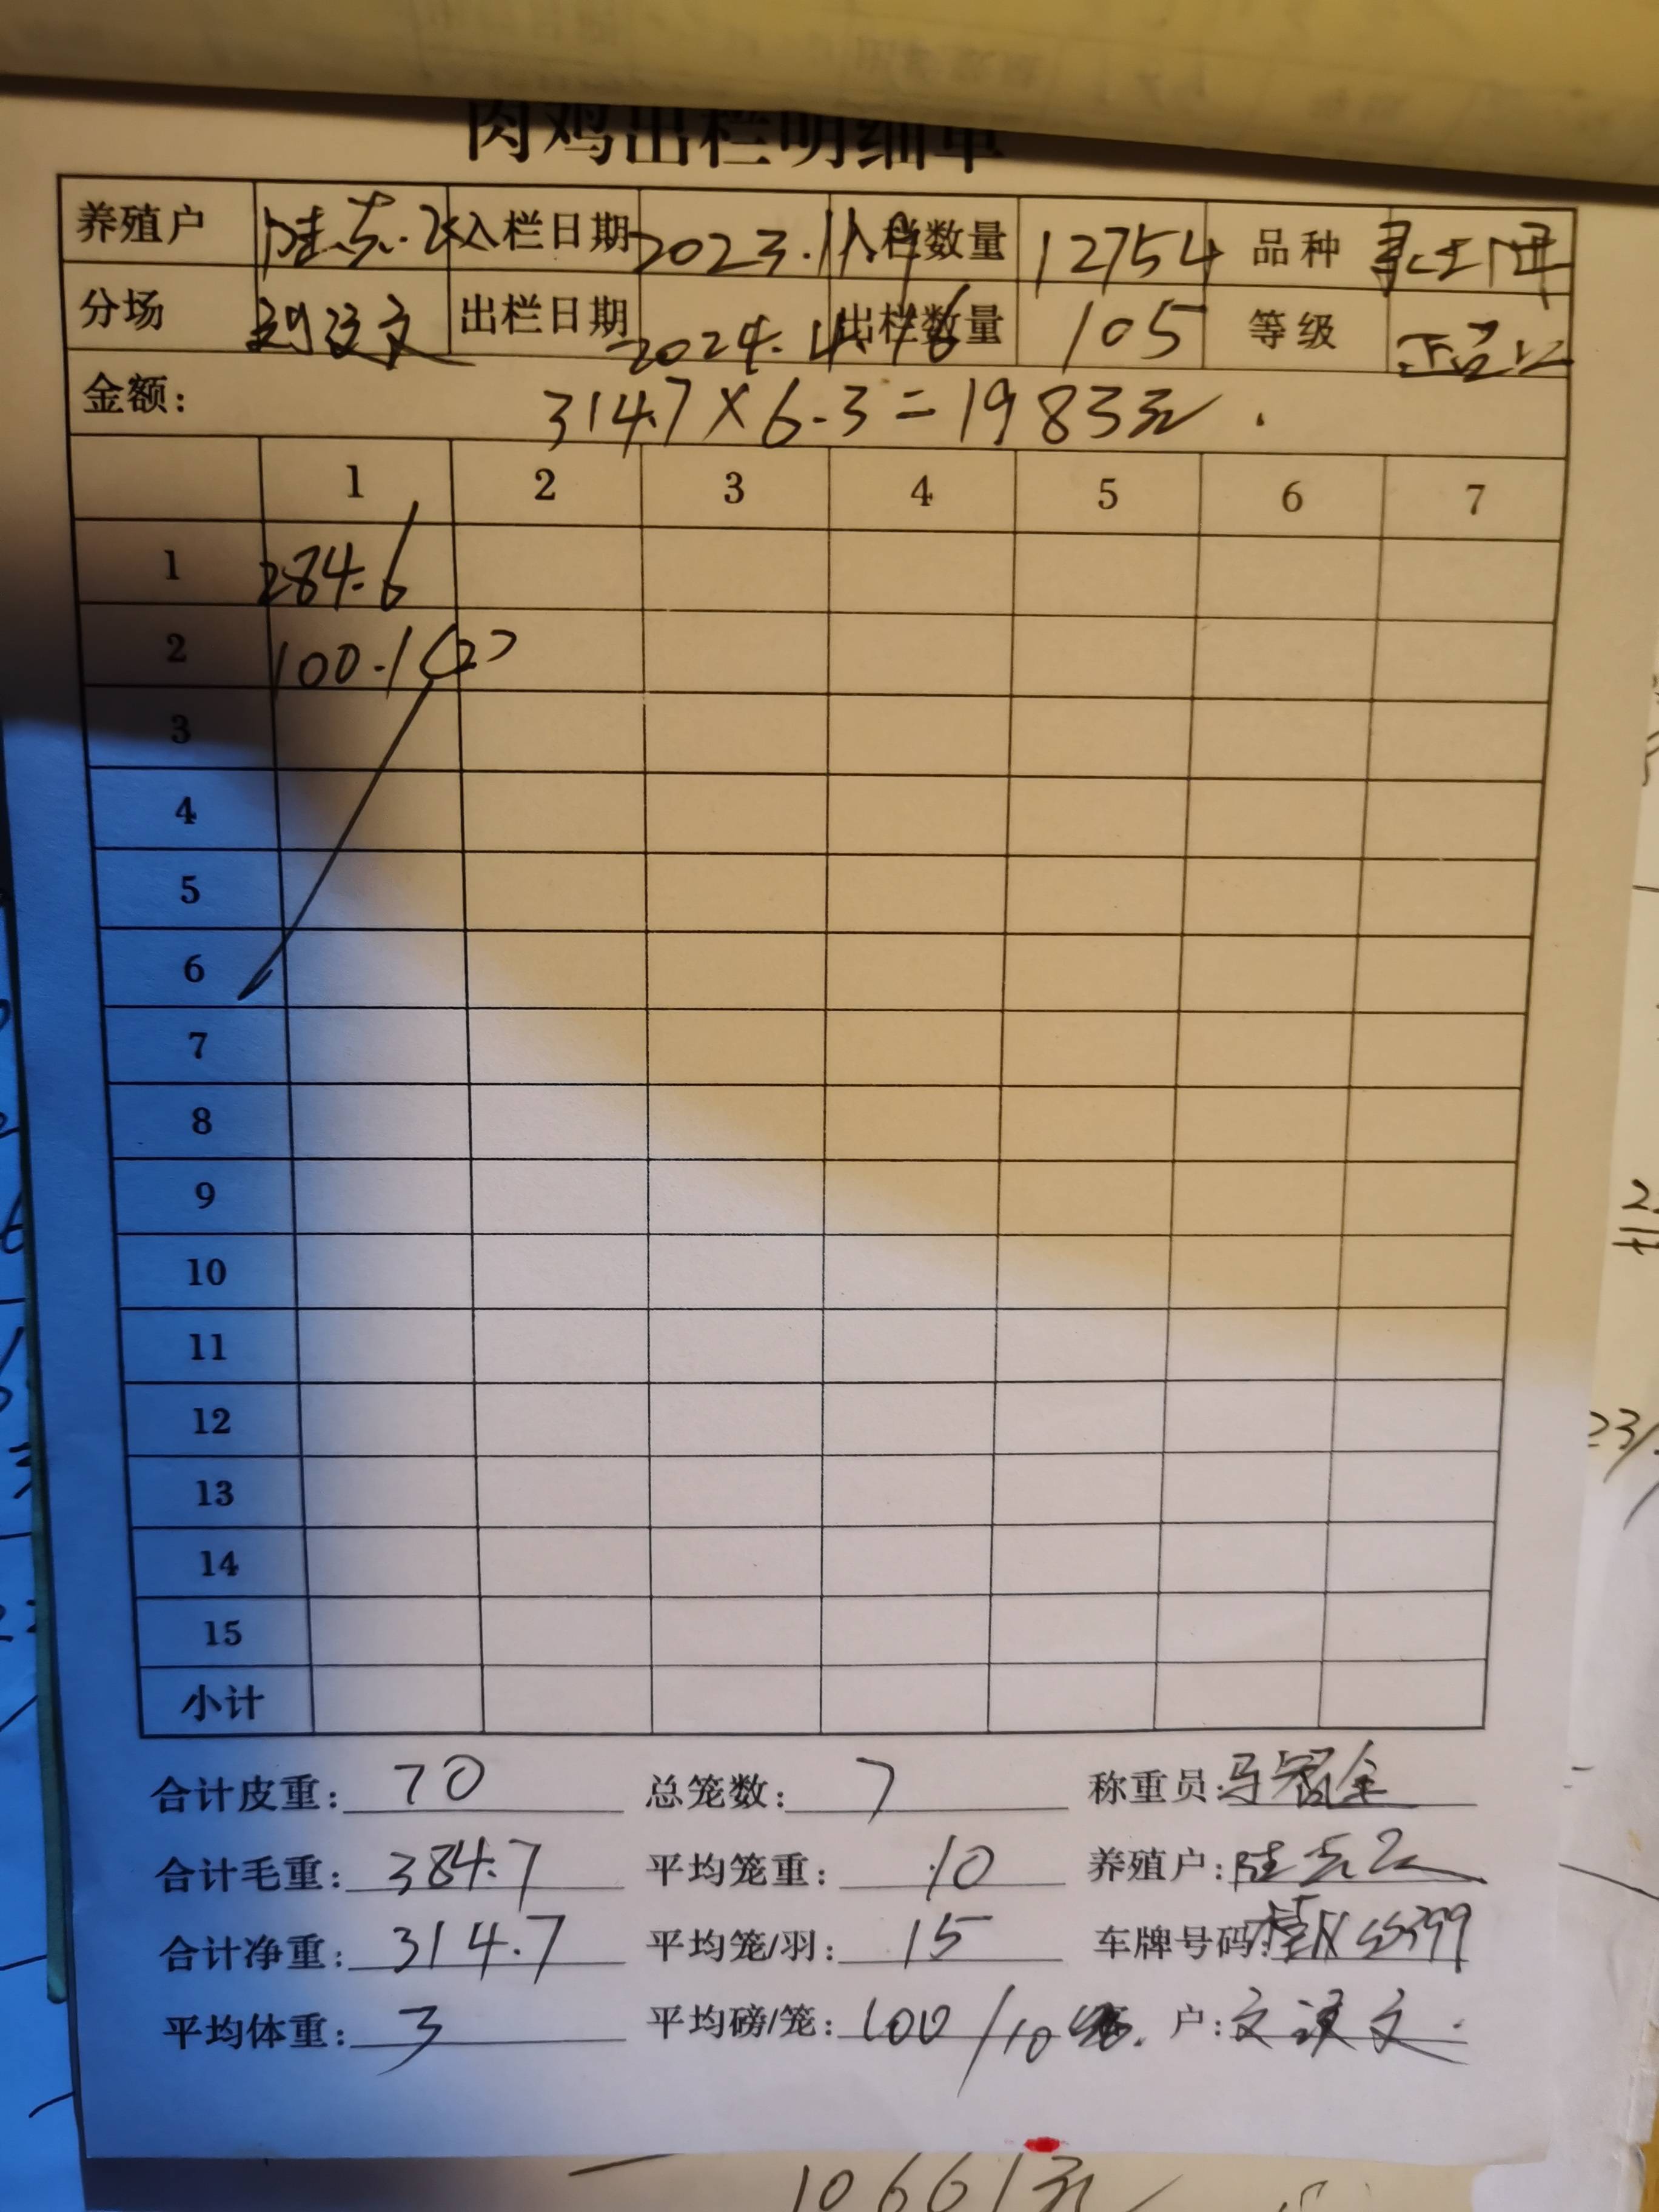 肉鸡出栏明细单
养殖户 陆志 入栏日期 2023.11.9 入栏数量 12754 品种
分场 刘汉文 出栏日期 2024.4.16 出栏数量 105 等级
金额: 314.7×6.3=1983元.
1 2 3 4 5 6 7
1 284.6
2 100.1(2)
3
4
5
6
7
8
9
10
11
12
13
14
15
小计
合计皮重: 70 总笼数: 7 称重员: 马
合计毛重: 384.7 平均笼重: 10 养殖户: 陆志
合计净重: 314.7 平均笼/羽: 15 车牌号码:
平均体重: 3 平均磅/笼: 100/10 户: 文汉文
10661元